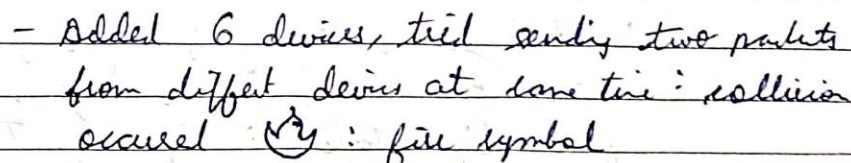 - Added 6 devices, tried sending two packets
from different devices at same time : collision
occured : fire symbol